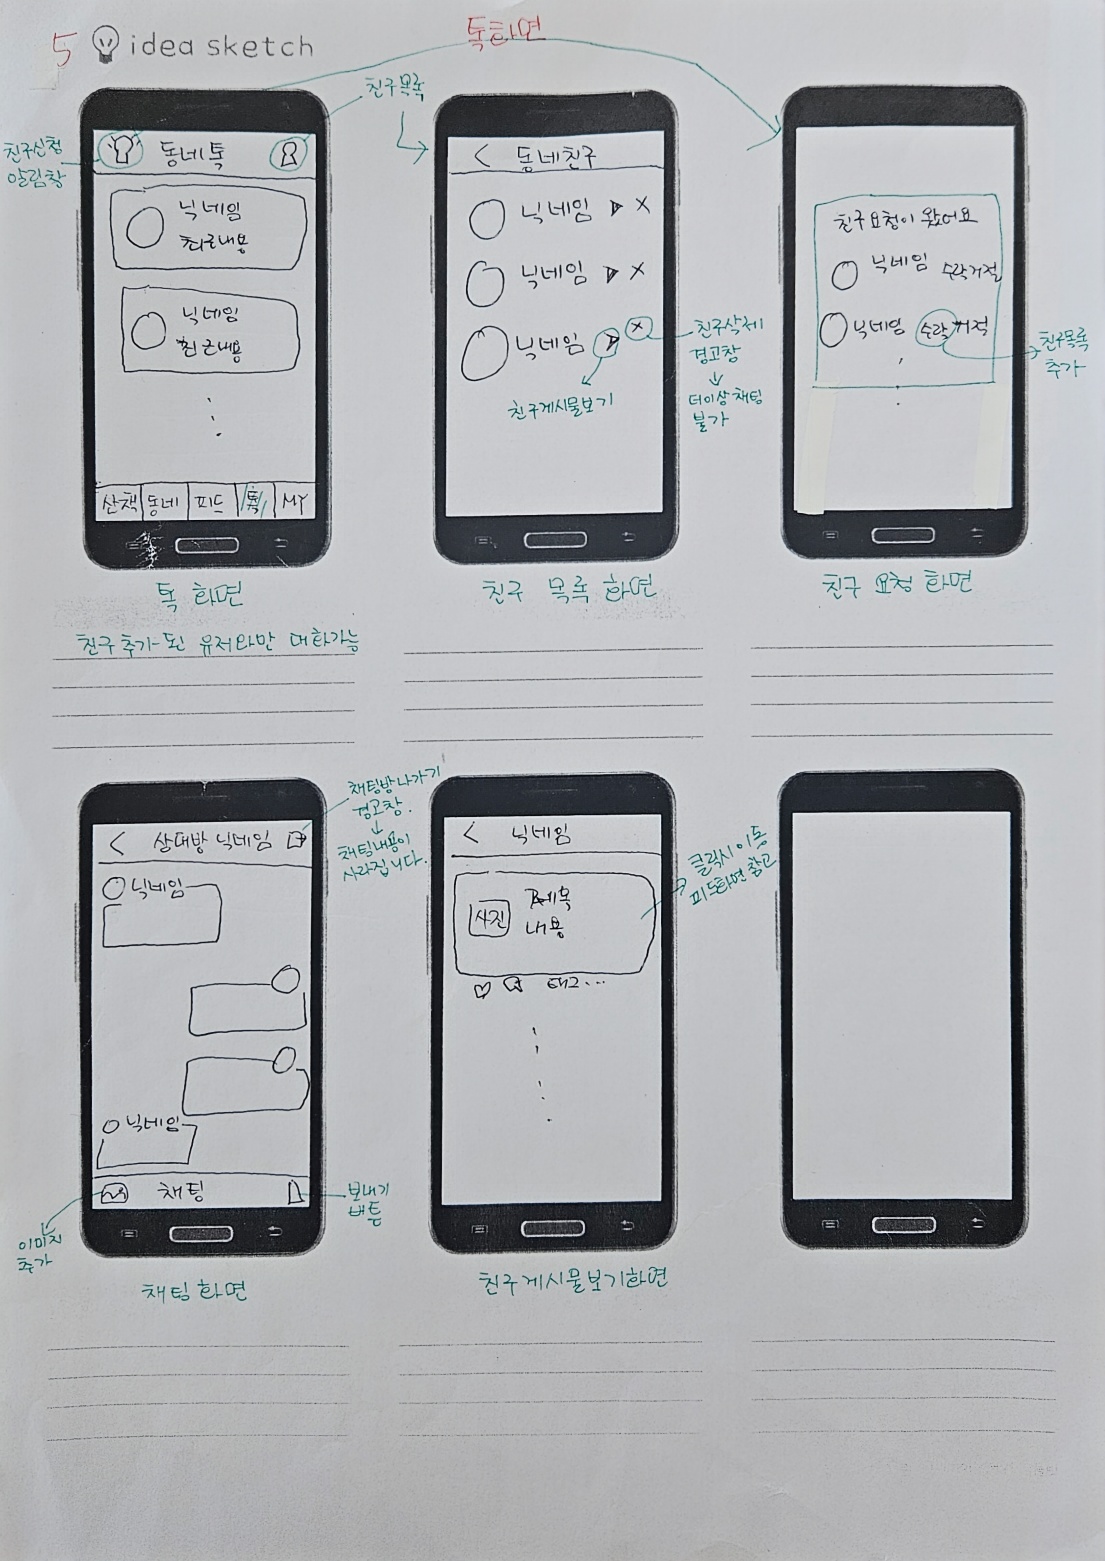 5
idea sketch
톡화면
친구목록
친구신청
알림창
동네톡
닉네임
최근내용
닉네임
최근내용
산책 동네 피드 톡 MY
톡 화면
친구 추가 된 유저와만 대화가능
< 동네친구
닉네임 X
닉네임 X
닉네임 X
친구게시물보기
친구삭제
경고창
더이상 채팅
불가
친구 목록 화면
친구요청이 왔어요
닉네임 수락거절
닉네임 수락거절
친구목록
추가
친구 요청 화면
< 상대방 닉네임
채팅방 나가기
경고창.
채팅내용이
사라집니다.
닉네임
닉네임
채팅
이미지
추가
보내기
버튼
채팅화면
< 닉네임
사진
제목
내용
태그...
클릭시 이동
피드화면 참고
친구게시물보기화면